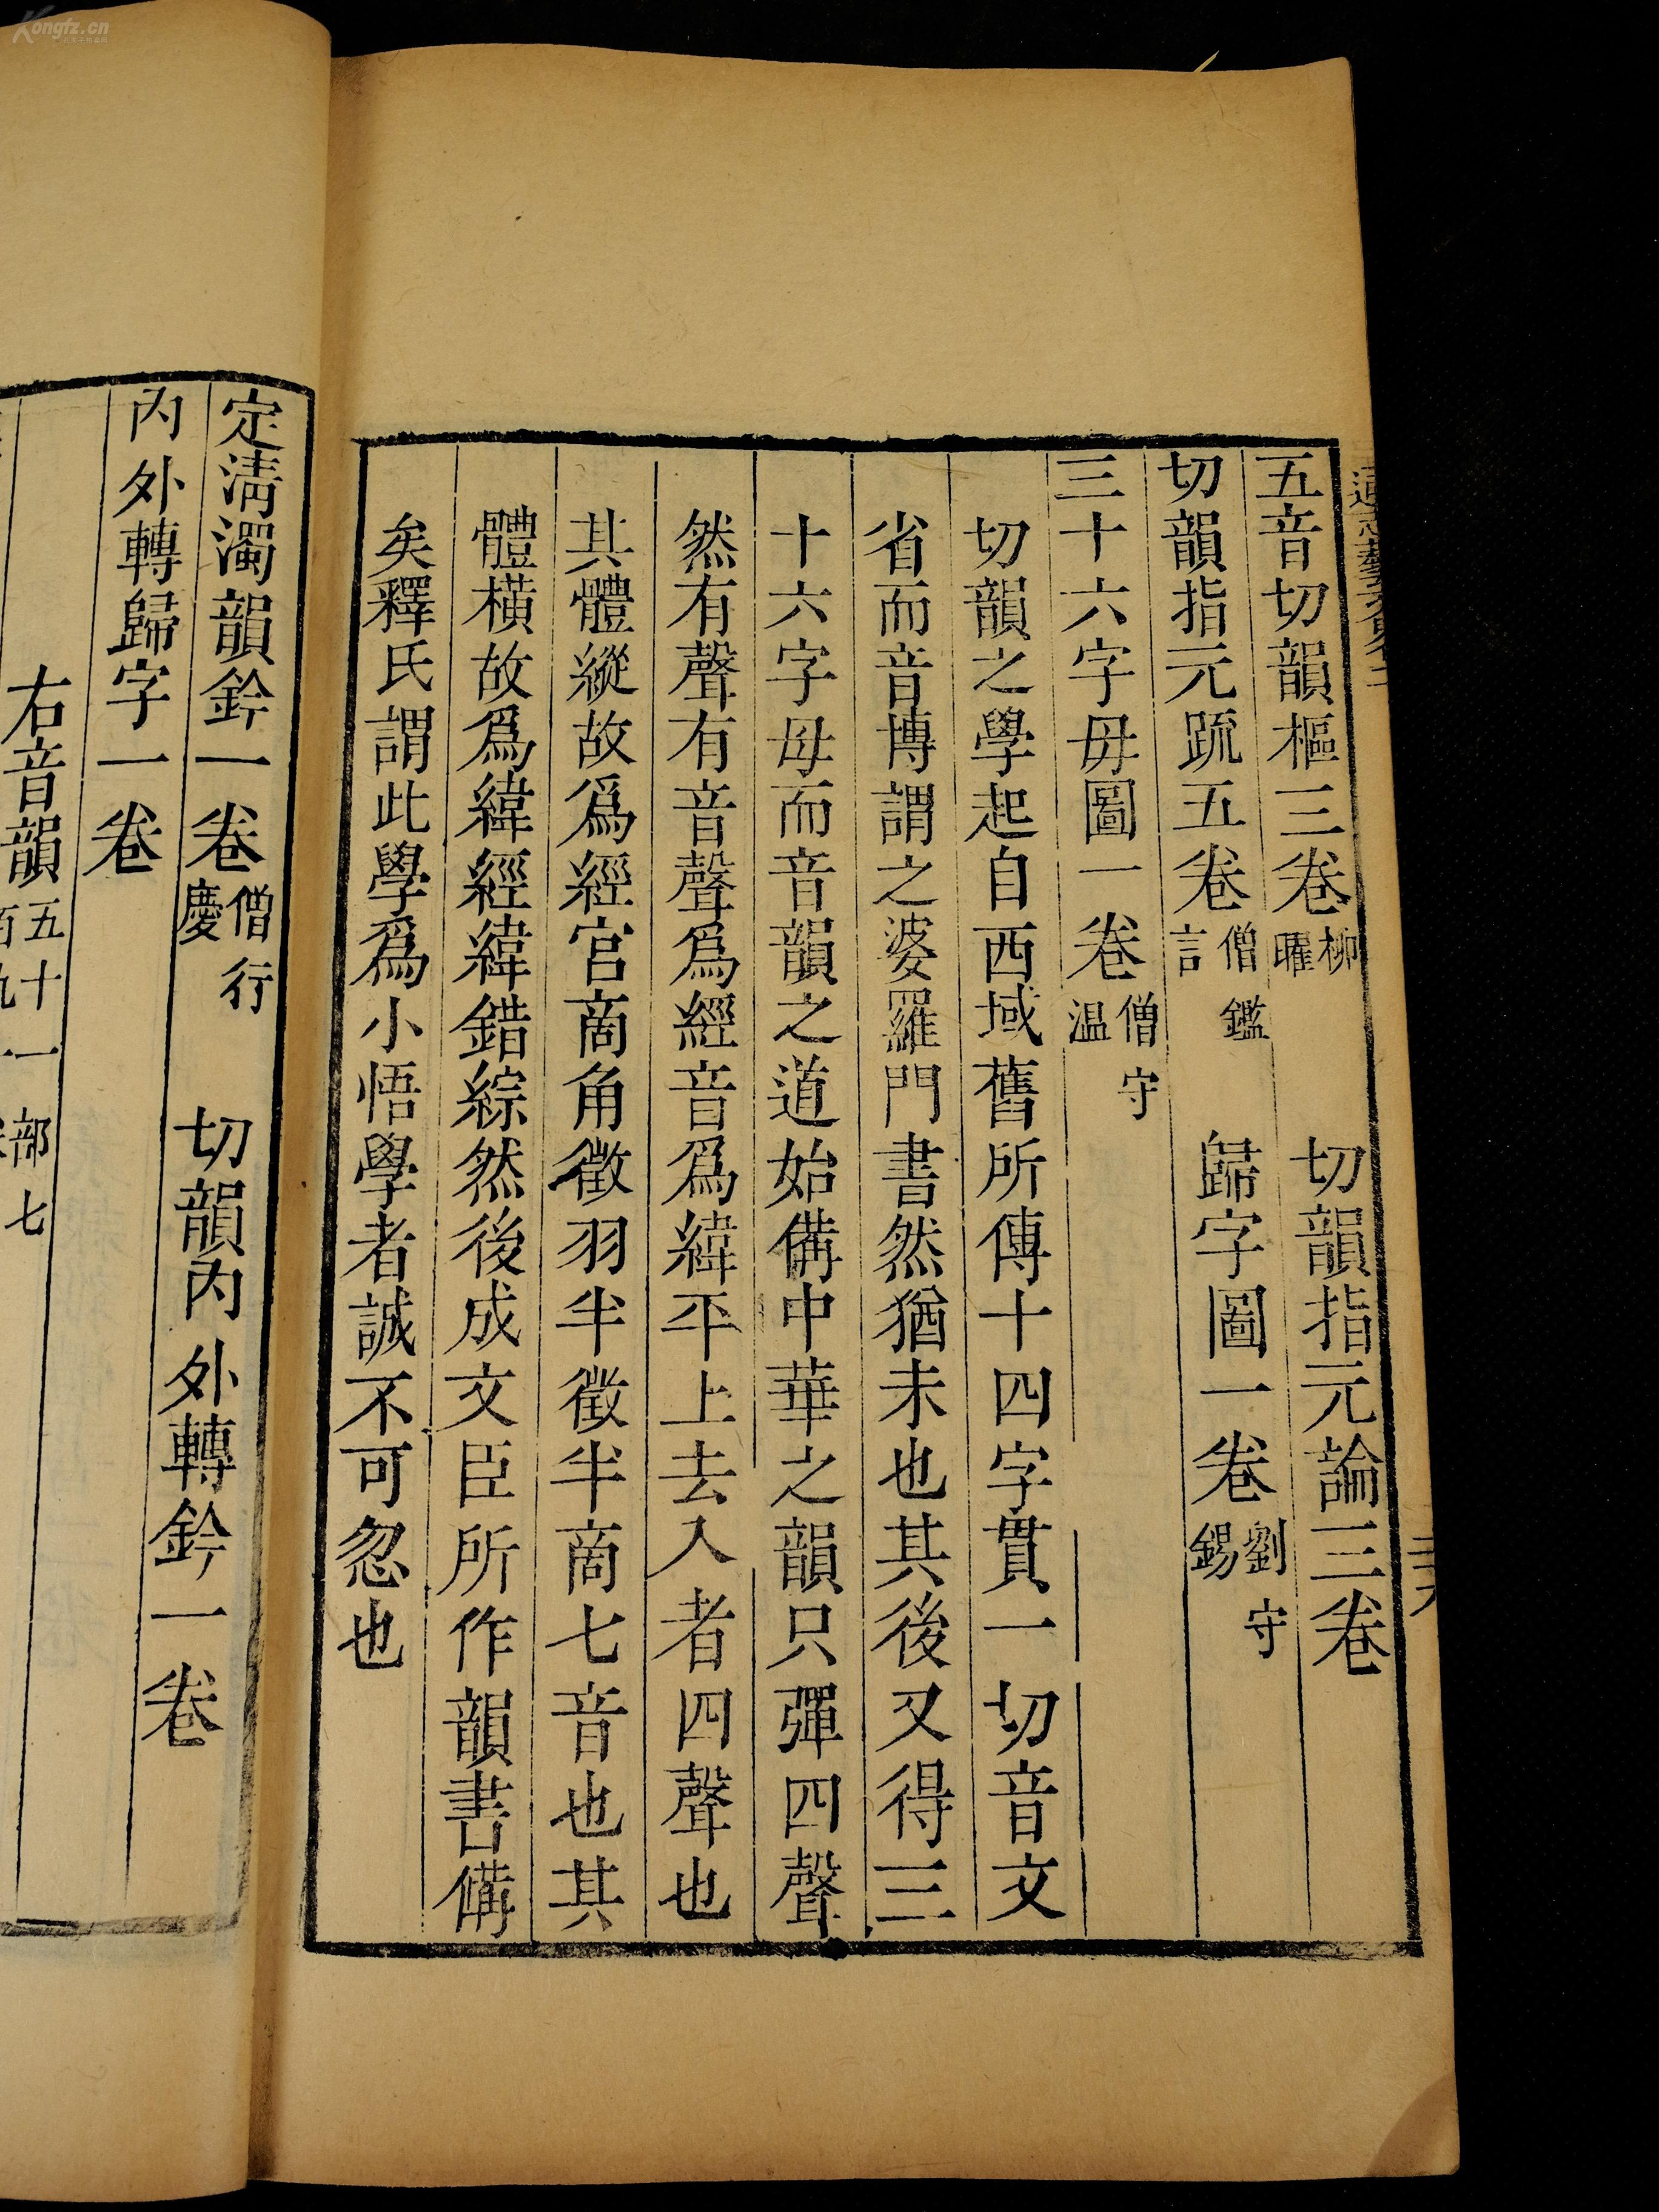 Kongfz.cn
通志藝文略二
二十八
五音切韻樞三卷 柳曜 切韻指元論三卷
切韻指元疏五卷 僧鑑言 歸字圖一卷 劉守錫
三十六字母圖一卷 僧守温
切韻之學起自西域舊所傳十四字貫一切音文
省而音博謂之婆羅門書然猶未也其後又得三
十六字母而音韻之道始備中華之韻只彈四聲
然有聲有音聲爲經音爲緯平上去入者四聲也
其體縱故爲經宮商角徵羽半徵半商七音也其
體橫故爲緯經緯錯綜然後成文臣所作韻書備
矣釋氏謂此學爲小悟學者誠不可忽也
定淸濁韻鈐一卷 僧行慶 切韻内外轉鈐一卷
内外轉歸字一卷
右音韻 五十一部七百九十一